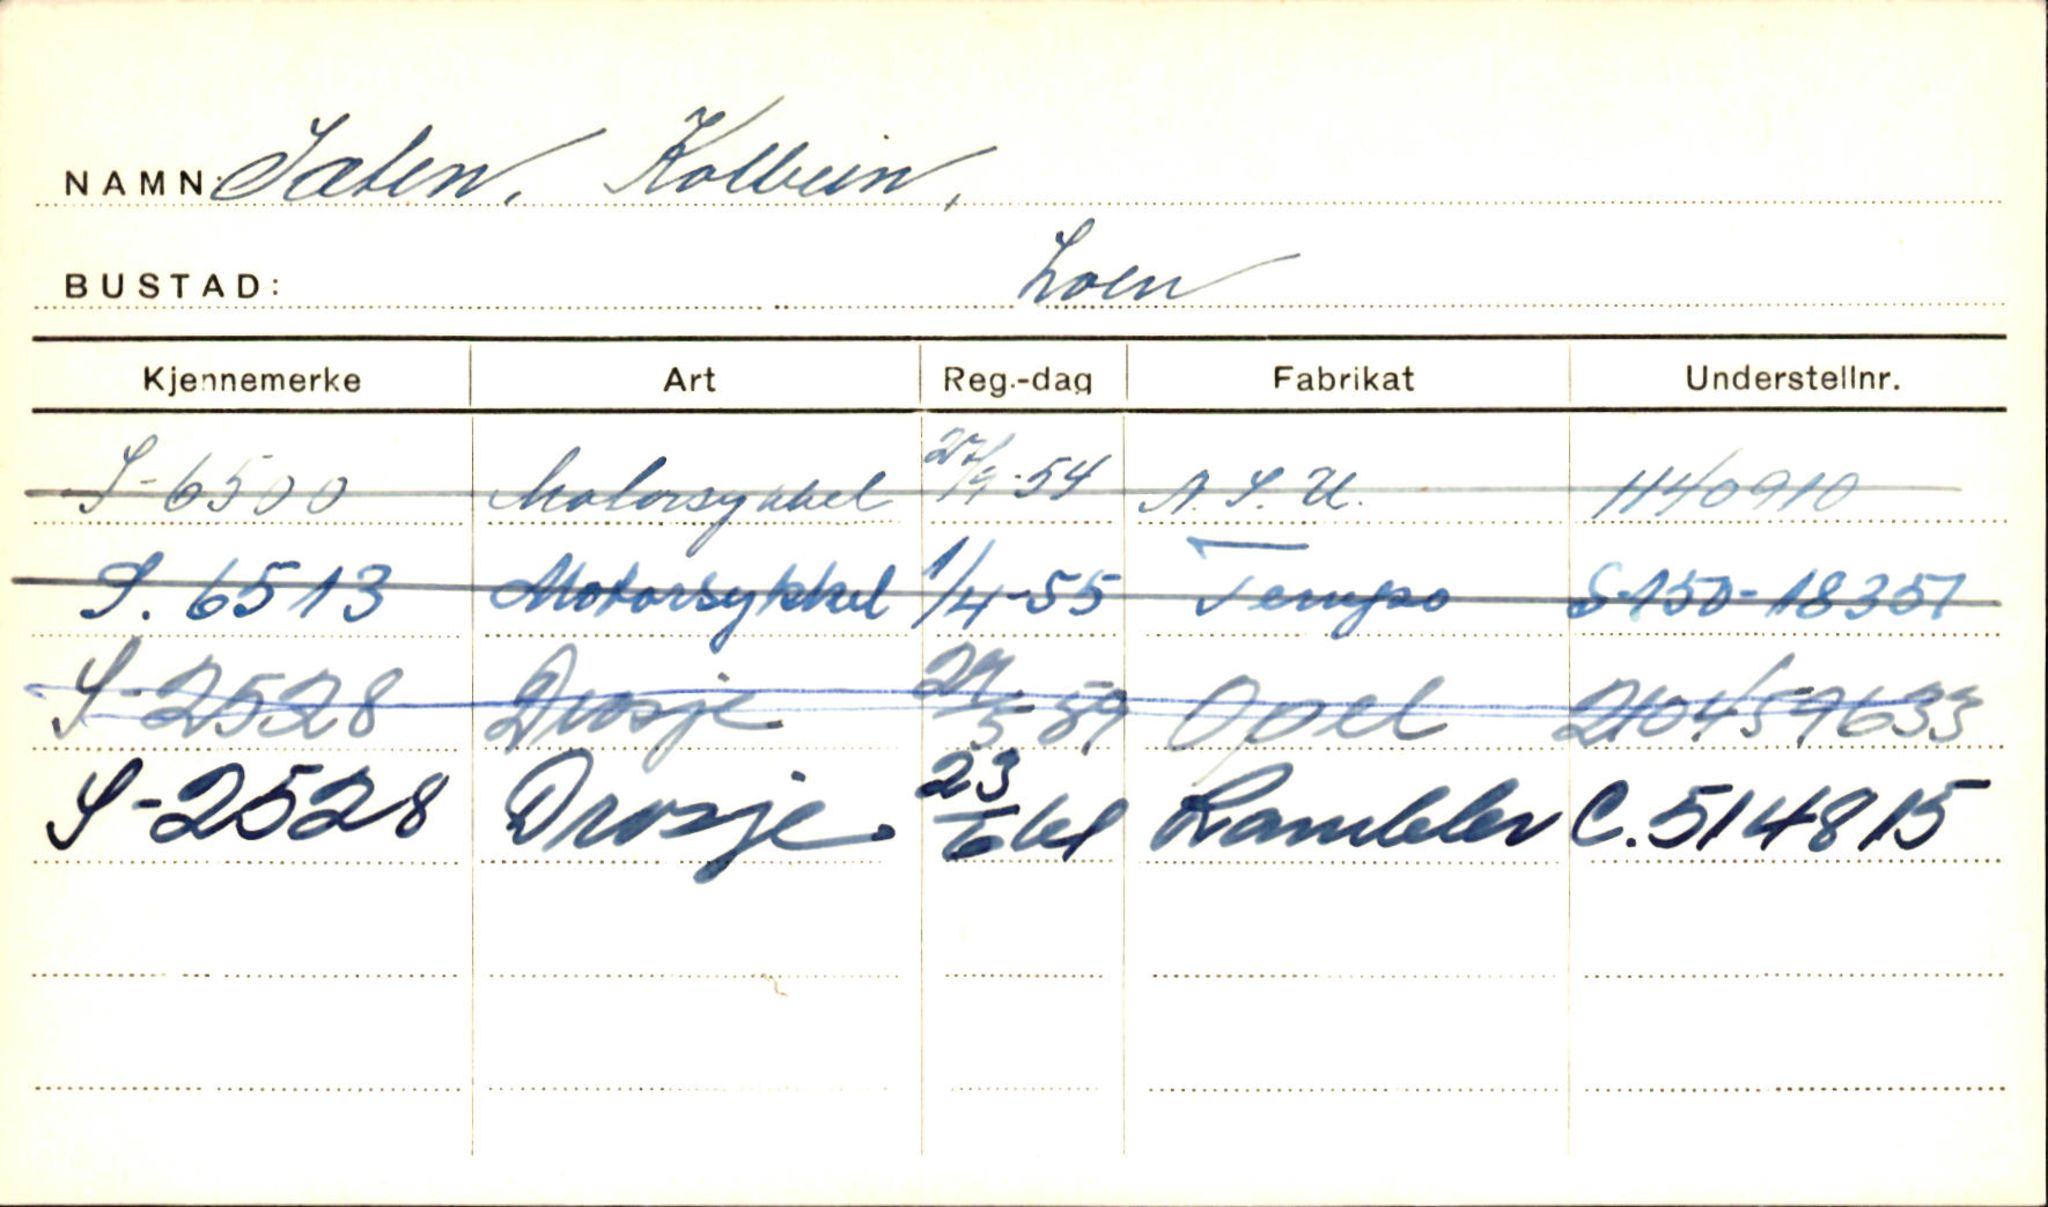 NAMN: Sæten, Kolbein,
BUSTAD: Loen
Kjennemerke Art Reg.-dag Fabrikat Understellnr.
S-6500 Motorsykkel 27/9-54 N.S.U. 1140910
S. 6513 Motorsykkel 1/4-55 Tempo S-150-18351
S-2528 Drosje 5 59 Opel
S-2528 Drosje. 23/6 61 Rambler C.514815